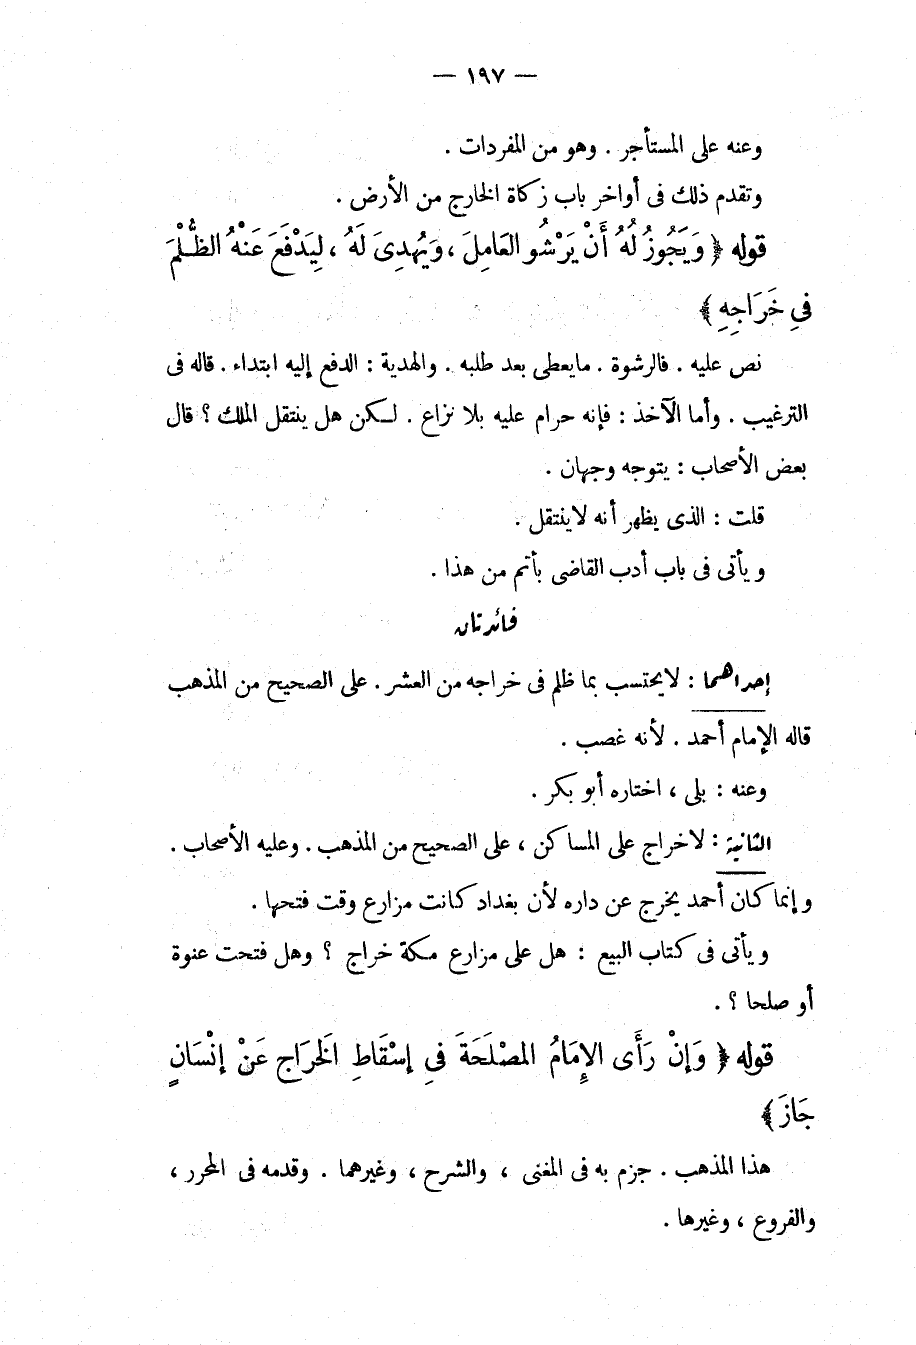 — ١٩٧ —
وعنه على المستأجر . وهو من المفردات .
وتقدم ذلك فى أواخر باب زكاة الخارج من الأرض .
قوله ﴿ وَيَجُوزُ لَهُ أَنْ يَرْشُوَ العَامِلَ ، وَيُهْدِىَ لَهُ ، لِيَدْفَعَ عَنْهُ الظُّلْمَ
فِي خَرَاجِهِ ﴾
نص عليه . فالرشوة . مايعطى بعد طلبه . والهدية : الدفع إليه ابتداء . قاله فى
الترغيب . وأما الآخذ : فإنه حرام عليه بلا نزاع . لكن هل ينتقل الملك ؟ قال
بعض الأصحاب : يتوجه وجهان .
قلت : الذى يظهر أنه لاينتقل .
ويأتى فى باب أدب القاضى بأتم من هذا .
فائدتان
إحداهما : لايحتسب بما ظلم فى خراجه من العشر . على الصحيح من المذهب
قاله الإمام أحمد . لأنه غصب .
وعنه : بلى ، اختاره أبو بكر .
الثانية : لاخراج على المساكن ، على الصحيح من المذهب . وعليه الأصحاب .
وإنما كان أحمد يخرج عن داره لأن بغداد كانت مزارع وقت فتحها .
ويأتى فى كتاب البيع : هل على مزارع مكة خراج ؟ وهل فتحت عنوة
أو صلحا ؟ .
قوله ﴿ وَإِنْ رَأَى الإِمَامُ المصْلَحَةَ فِي إِسْقَاطِ الخَرَاجِ عَنْ إِنْسَانٍ
جَازَ ﴾
هذا المذهب . جزم به فى المغنى ، والشرح ، وغيرهما . وقدمه فى المحرر ،
والفروع ، وغيرها .